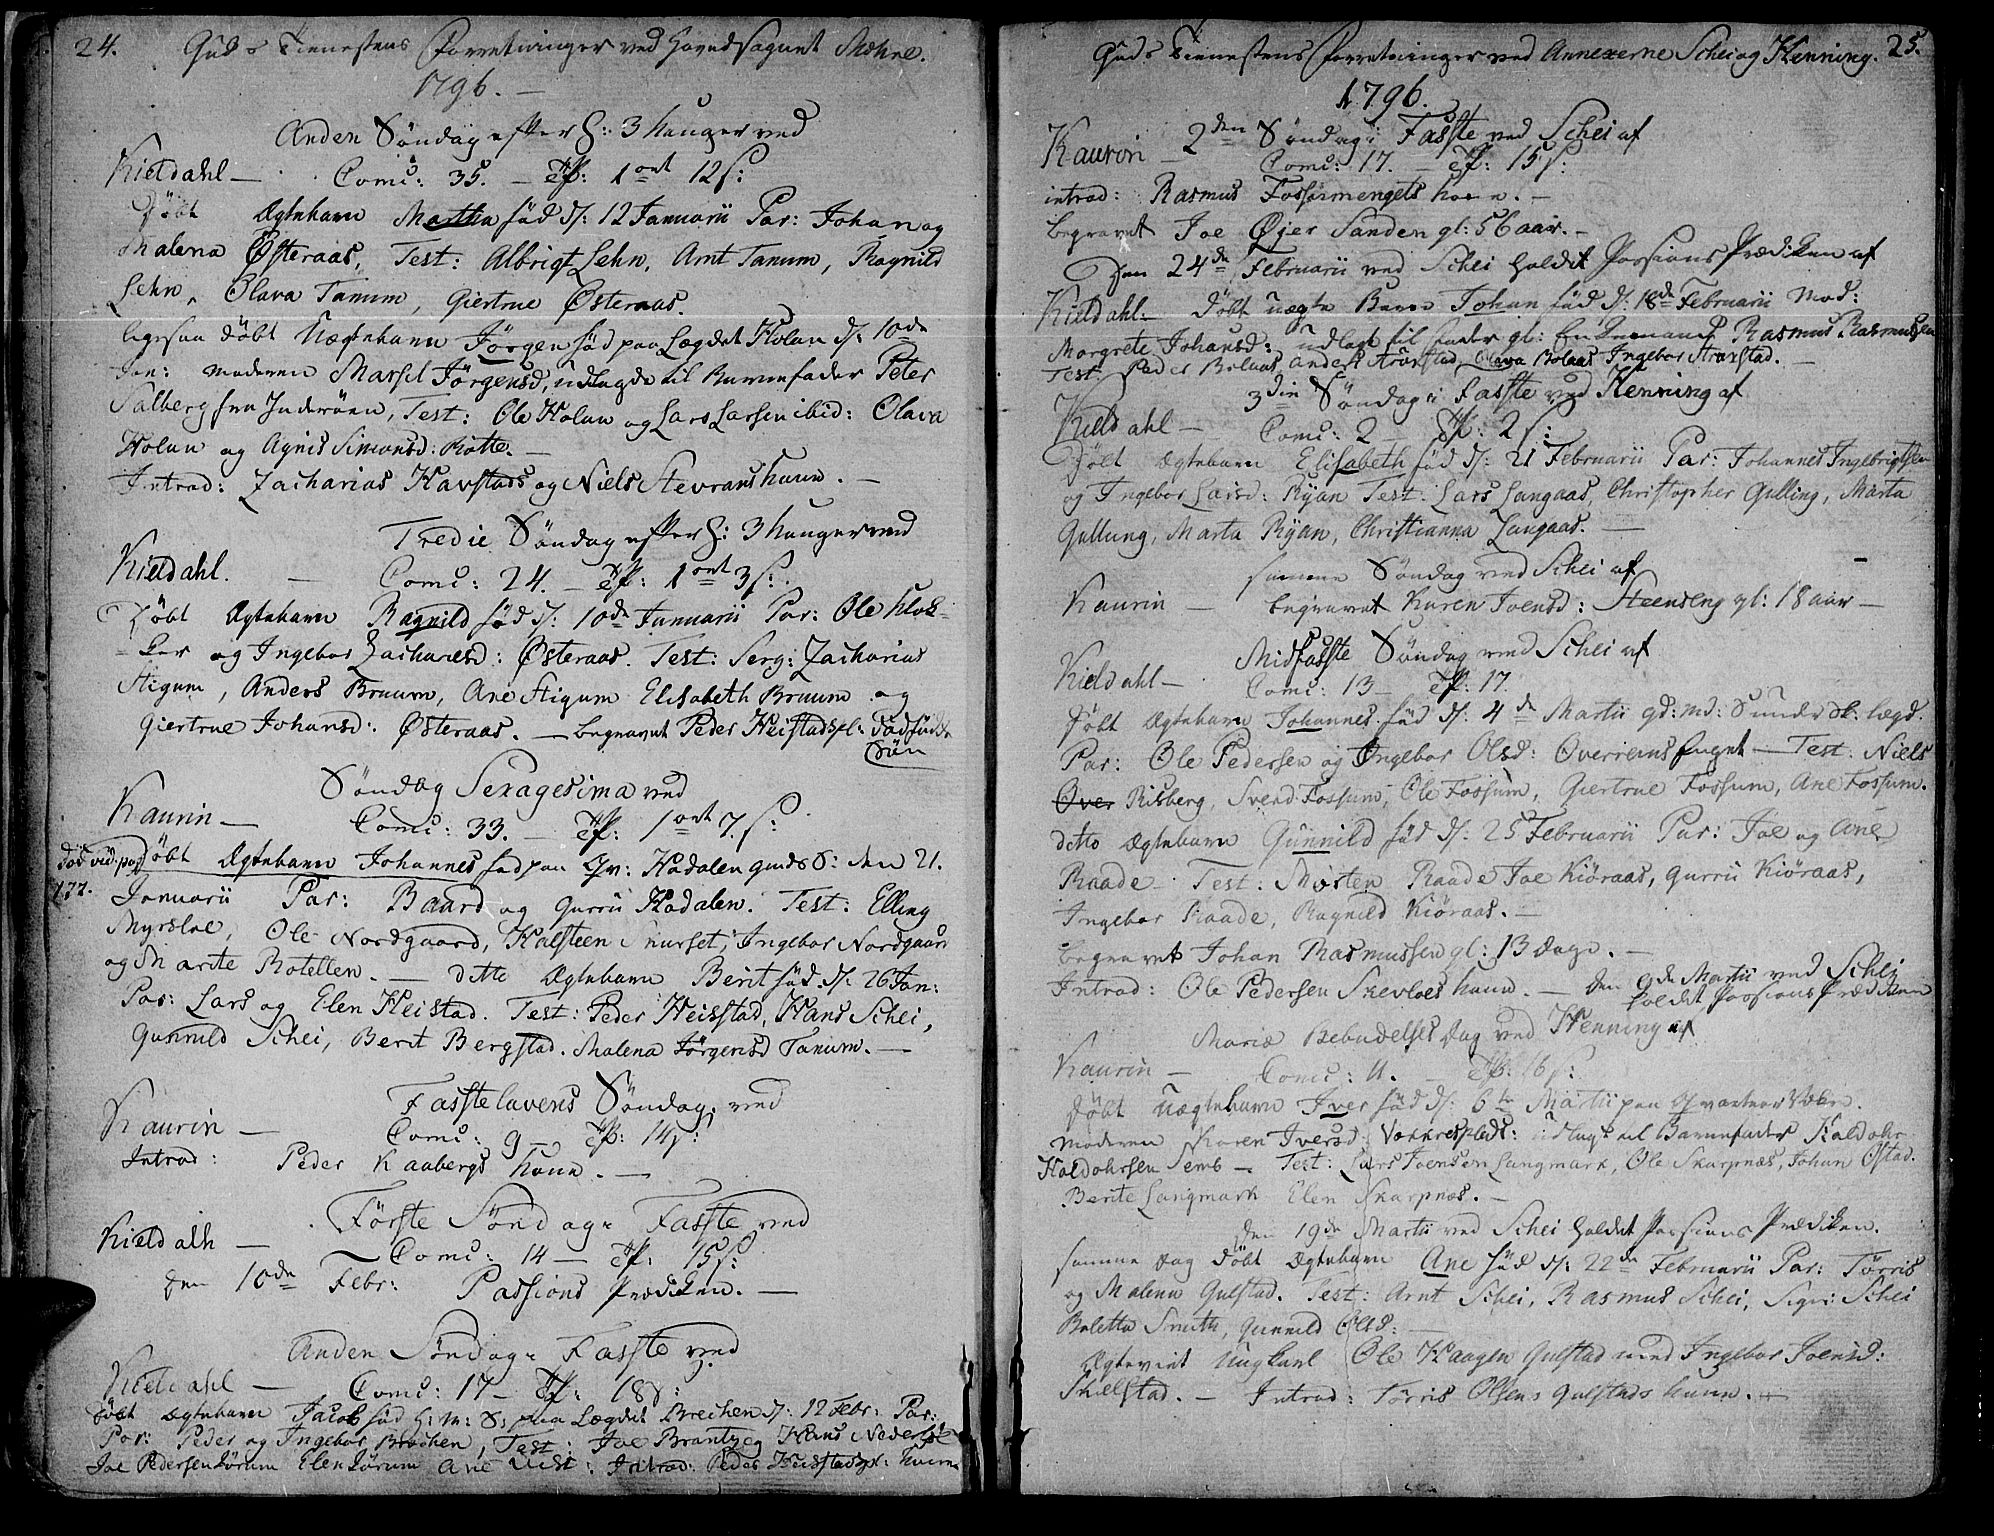 24. Guds Tienestens Forretninger ved Hovedsognet Mæhre.
1796. —
Anden Søndag efter H: 3 Konger ved
Kieldahl — Comu: 35. — Tf: 1 ort 12 s:
Døbt Ægtebarn Martha fød d: 12 Januarii Par: Johan og
Malena Østeraas, Test: Albrigt Lehn, Arnt Tanum, Ragnild
Lehn, Olava Tanum, Giertrue Østeraas.
ligesaa døbt Uægtebarn Jörgen fød paa Lægdet Holan d: 10de
Jan: Moderen Marsel Jörgensd, udlagde til Barnefader Peter
Salberg fra Inderöen, Test: Ole Holan og Lars Larsen ibid: Olava
Holan og Agnis Simonsd: Rotte. —
Introd: Zacharias Havstads og Niels Stevrans kone. —
Tredie Søndag efter H: 3 Konger ved
Kieldahl. — Comu: 24. — Tf: 1 ort 3 s:
Døbt Ægtebarn Ragnild fød d: 10de Januarii Par: Ole Klok-
ker og Ingebor Zachariesd: Østeraas. Test: Serg: Zacharias
Stigum, Anders Bruum, Ane Stigum Elisabeth Bruum og
Giertrue Johansd: Østeraas. — begravet Peder Heistadspl: dødfødde
Søn
Søndag Sexagesima ved
Kaurin — Comu: 33. — Tf: 1 ort 7. s:
død vid: pag Døbt Ægtebarn Johannes fød paa Hadalen den 21.
177. Januarii Par: Baard og Gurru Hadalen. Test: Elling
Myrsloe, Ole Nordgaard, Halsteen Snurset, Ingebor Nordgaard
og Marite Rotellen. — ditto Ægtebarn Berit fød d: 26 Jan:
Par: Lars og Elen Heistad. Test: Peder Heisstad, Hans Schei,
Gunnild Schei, Berit Bergstad. Malena Jørgensd Tanum. —
Fasstelavens Søndag, ved
Kaurin — Comu: 9 — Tf: 14 s:
Introd: Peder Kaabergs kone. —
Første Søndag i Fasste ved
Kieldalh — Comu: 14 — Tf: 15 s:
den 10de Febr: Passions Prædiken. —
Anden Søndag i Fasste ved
Kieldahl — Comu: 17 — Tf: 18 s:
Døbt Ægtebarn Jacob fød paa Lægdet Brechen d: 12 Febr: Par:
Par: Peder og Ingebor Brechen, Test: Joe Brantzeg Hans
Joe Pedersen Elen Ane Introd: Peder Heistadspl: kone
Guds Tienestens Forretninger ved Annexerne Schei og Henning. 25.
1796.
Kauron — 2den Søndag i Fasste ved Schei af
Comu: 17. — Tf: 15 s:
introd: Rasmus Fossemengets kone. —
begravet Joe Øjer Sanden gl: 56 aar. —
Den 24de Februarii ved Schei holdet Passions Prædiken af
Kieldahl — Døbt uægte Barn Johan fød d: 18de Februarii Mod:
Margrete Johansd: udlagt til fader Rasmus Rasmussen
Test Peder Bolaas, Anders Olava Bolaas Ingebor
3die Søndag i Fasste ved Henning af
Kieldahl — Comu: 2 — Tf: 2 s:
Døbt Ægtebarn Elisabeth fød d: 21 Februarii Par: Johannes Ingebrigtsen
og Ingebor Larsd: Ryan Test: Lars Langaas, Christopher Gulling, Marta
Gullung, Marta Ryan, Christianna Langaas. —
samme Søndag ved Schei af
Kaurin — begravet Karen Joensd: Steenseng gl: 18 aar —
Midfasste Søndag ved Schei af
Kieldahl — Comu: 13 — Tf: 17.
Døbt Ægtebarn Johannes fød d: 4de Martii lægd.
Par: Ole Pedersen og Ingebor Olsd: Overreins Test: Niels
Over Risberg, Svend Fossum, Ole Fossum, Giertrue Fossum, Ane Fossum.
ditto Ægtebarn Gunnild fød d: 25 Februarii Par: Joe og Ane
Raade — Test: Morten Raade Joe Kiöraas, Gurru Kiöraas,
Ingebor Raade, Ragnild Kiöraas. —
begravet Johan Rasmussen gl: 13 Dage. —
Introd: Ole Pedersen Skevloes kone. — Den 9de Martii ved Schei
holdet Passions Prædiken
Mariæ Bebudelses Dag ved Henning af
Kaurin — Comu: 11. — Tf: 16 s:
Døbt Uægtebarn Iver fød d: 6te Martii paa
Moderen Karen Iversd: udlagt til Barnefader Haldohr
Haldohrsen Semb — Test: Lars Joensen Langmark, Ole Skarpnæs, Johan Østad.
Berite Langmark Elen Skarpnæs. —
den 19de Martii ved Schei holdet Passions Prædiken.
samme Dag Døbt Ægtebarn Ane fød d: 22de Februarii Par: Törris
og Malena Gulstad. Test: Arnt Schei, Rasmus Schei, Sigri Schei
Boletta Smith, Gunnild Olsd: —
Ægteviet Ungkarl Ole Haagen Gulstad med Ingebor Joensd:
Skielstad. — Introd: Törris Olsens Gulstads kone. —